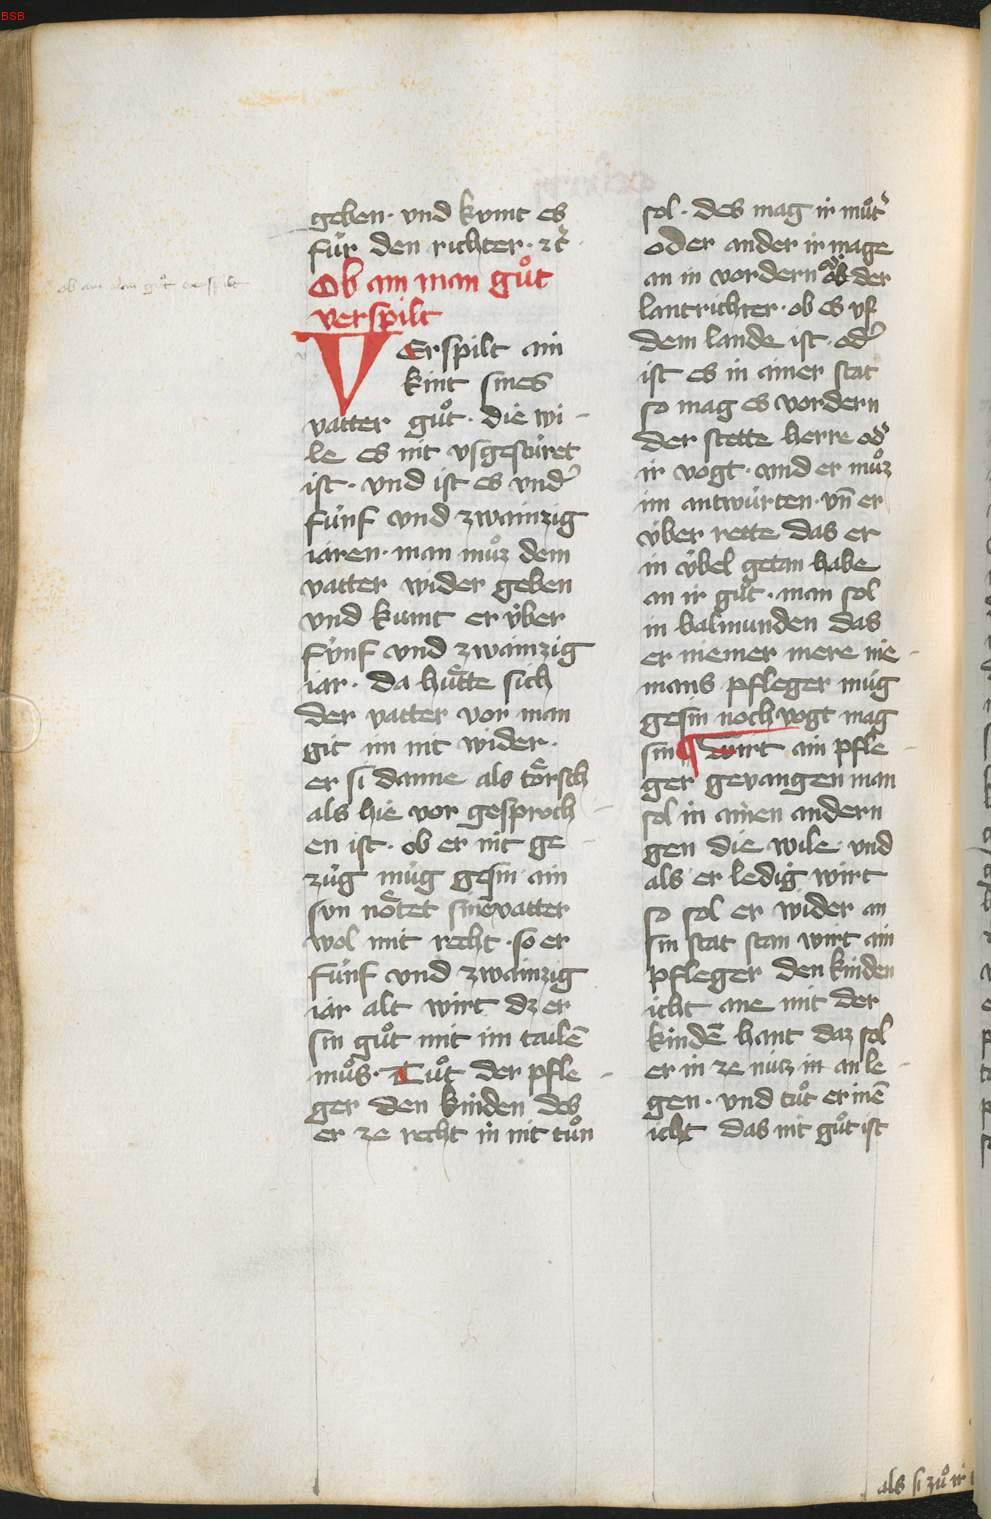 BSB
geben· vnd kvmt es
fúr den richter· ꝛc̄·
Ob ain man gůt
verspilt
ob ain man gůt verspilt
VErspilt ain
kint sines
vatter gůt· die wi-
le es nit vsgestúret
ist· vnd ist es vnd͛
fúnf vnd zwainzig
iaren· man můz dem
vatter wider geben
vnd kumt er v́ber
fv́nf vnd zwainzig
iar· da hu̍tte sich
der vatter vor man
git im nit wider·
er si danne als tôrsch
als hie vor gesproch-
en ist· ob er nit ge-
zúg múg gesin ain
svn nôtet sinē vatter
wol mit recht· so er
fúnf vnd zwainzig
iar alt wirt dz er
sin gůt mit im tailē
můs· Tůt der pfle-
ger den kinden des
er ze recht in nit tůn
sol· des mag ir můt͛
oder ander ir mage
an in vordern od͛ der
lantrichter· ob es vf
dem lande ist· od͛
ist es in ainer stat
so mag es vordern
der stette herre od͛
ir vogt· vnd er můz
im antwúrten· vn̄ er
v́ber rette das er
in v́bel getan habe
an ir gůt· man sol
in balmunden das
er niemer mere nie-
mans pfleger múg
gesin noch vogt mag
sin ¶ Wirt ain pfle-
ger gevangen man
sol in ainen andern
gen die wile· vnd
als er ledig wirt
so sol er wider an
sin stat stan wirt ain
pfleger den kinden
icht ane mit der
kindē hant daz sol
er in ze nútz in an le-
gen· vnd tůt er inē
icht das nit gůt ist
als si zů ir